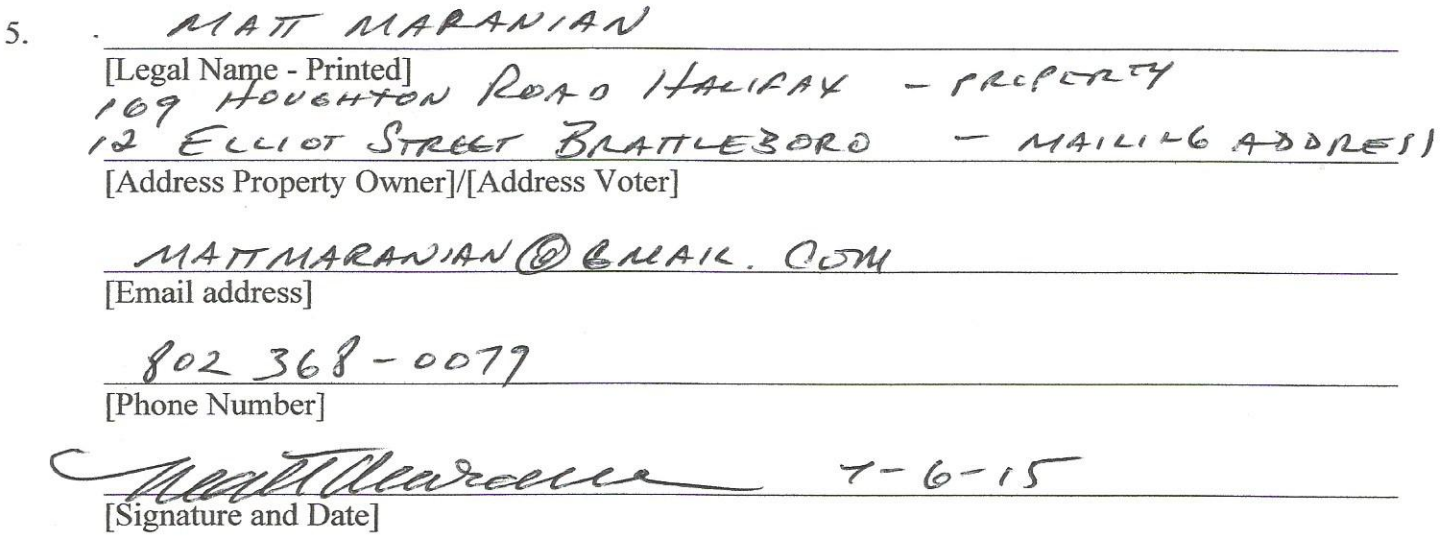 5. MATT MARANIAN
[Legal Name - Printed]
169 HOUGHTON ROAD HALIFAX - PROPERTY
12 ELLIOT STREET BRATTLEBORO - MAILING ADDRESS
[Address Property Owner]/[Address Voter]
MATTMARANIAN@GMAIL.COM
[Email address]
802 368-0079
[Phone Number]
Matt Maranian 7-6-15
[Signature and Date]